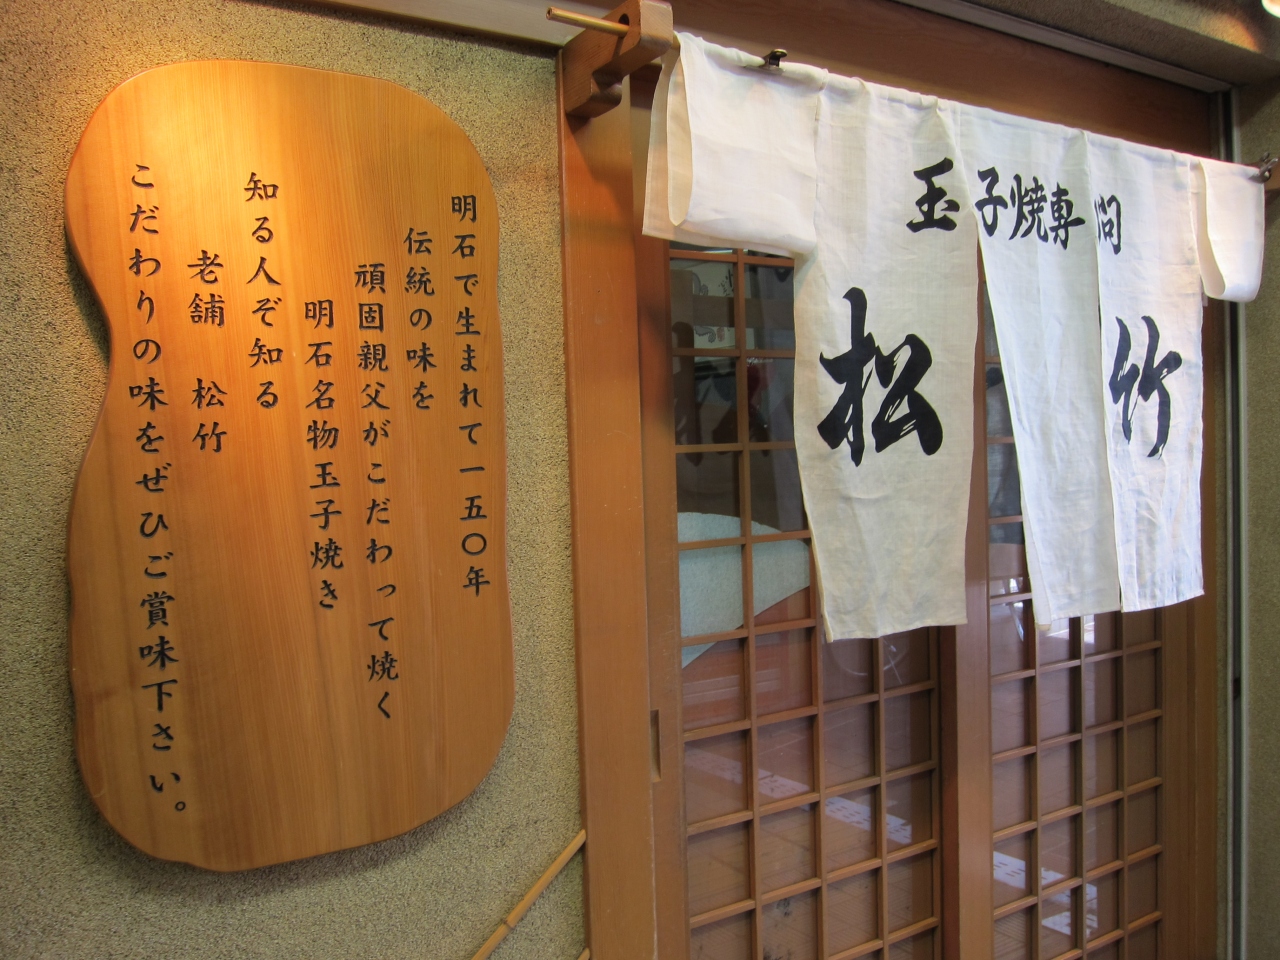 明石で生まれて一五〇年
伝統の味を
頑固親父がこだわって焼く
明石名物玉子焼き
知る人ぞ知る
老舗 松竹
こだわりの味をぜひご賞味下さい。
玉子焼専問
松竹